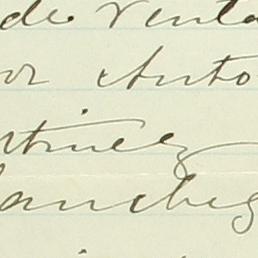 de venta
or Anto
rtinez
anchez